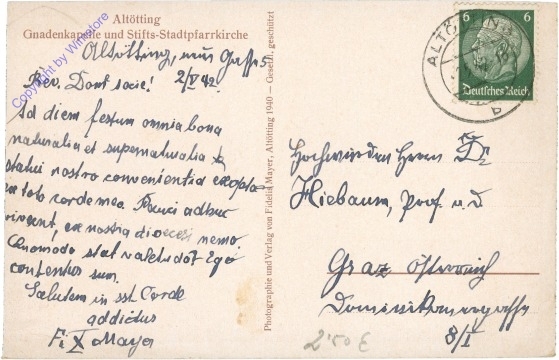 Altötting
Gnadenkapelle und Stifts-Stadtpfarrkirche
Copyright by Winestore
Altötting, neue Gasse 5
2/V 42
Rev. Dom socie!
Ad diem festum omnia bona
naturalia et supernaturalia
statui nostro convenientia exopta
ex toto corde meo. Pauci adhuc
vivunt, ex nostra dioecesi nemo.
Quomodo stat valetudo? Ego
contentus sum.
Salutem in sst. Corde
addictus
F. X. Mayer
Photographie und Verlag von Fidelis Mayer, Altötting 1940 — Gesetzl. geschützt
6 6
Deutsches Reich
ALTÖTTING
b
Hochwürden Herrn Dr
Hiebaum, Prof u. d
Graz Österreich
Dominikanergasse
8/I
2'50 €